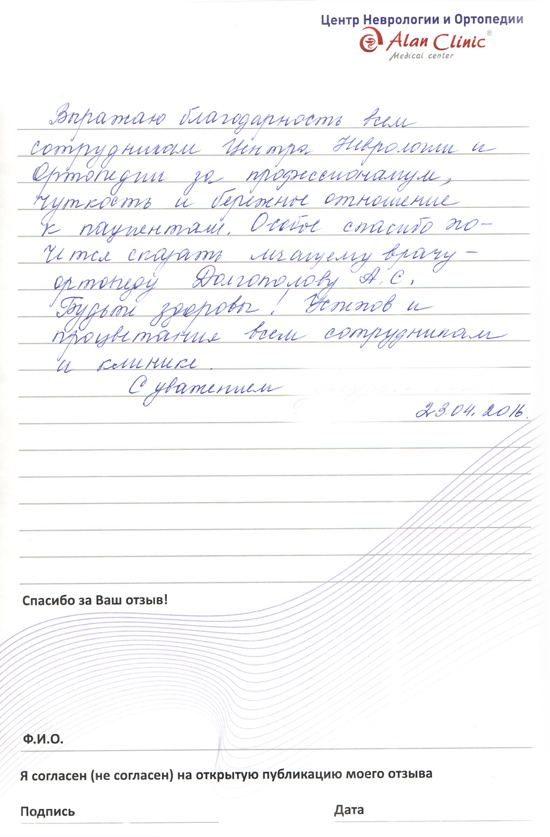 Центр Неврологии и Ортопедии
Alan Clinic®
Medical center
Выражаю благодарность всем
сотрудникам Центра Неврологии и
Ортопедии за профессионализм,
чуткость и бережное отношение
к пациентам. Особое спасибо хо-
чется сказать лечащему врачу -
ортопеду Долгополову А.С.
Будьте здоровы! Успехов и
процветания всем сотрудникам
и клинике.
С уважением
23.04.2016.
Спасибо за Ваш отзыв!
Ф.И.О.
Я согласен (не согласен) на открытую публикацию моего отзыва
Подпись Дата